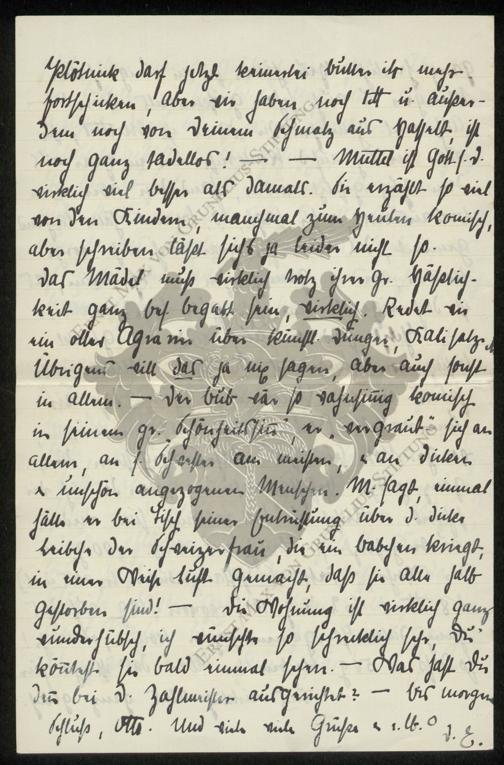 Plötnick darf jetzt keinerlei butter etc mehr
fortschicken, aber wir haben noch 1 tt u. außer-
dem noch von Deinem Schmalz aus Hasselt, ist
noch ganz tadellos! — — Muttel ist Gott s. d.
wirklich viel besser als damals. Sie erzählt so viel
von den Kindern, manchmal zum heulen komisch,
aber schreiben läßt sichs ja leider nicht so.
Das Mädel muß wirklich trotz ihrer gr. Häßlich-
keit ganz bes begabt sein, wirklich. Redet wie
ein oller Agrarier über künstl. Dünger, Kalisalze
Übrigens will das ja nix sagen, aber auch sonst
in allem. — Der bub wär so wahnsinnig komisch
in seinem gr. "Schönheitssinn" er "vergraust" sich an
allem, an s. Schwester am meisten, u an dicken
u unschön angezogenen Menschen. M. sagt, einmal
hätte er bei Tisch seiner Entrüstung über d. dicke
Leibche der Schweizerfrau, die ein babchen kriegt,
in einer Weise Luft gemacht, daß sie alle halb
gestorben sind! — Die Wohnung ist wirklich ganz
wunderhübsch, ich wünschte so schrecklich sehr, Du
könntest sie bald einmal sehen. — Was hast Du
denn bei d. Zahlmeister ausgerichtet? — bis morgen
Schluß, Otto. Und viele viele Grüße
D. E.
ERNST ALEX VON GRUNELIUS-STIFTUNG
ERNST ALEX VON GRUNELIUS-STIFTUNG